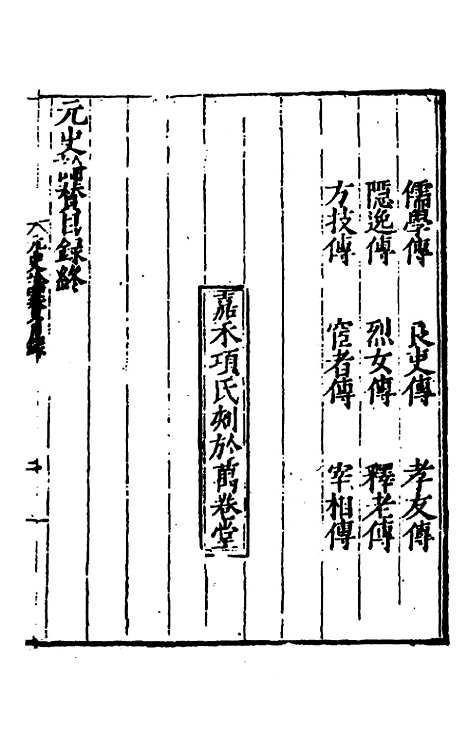 儒學傳 良吏傳 孝友傳
隱逸傳 烈女傳 釋老傳
方技傳 宦者傳 宰相傳
嘉禾項氏刻於萬卷堂
元史論贊目錄終